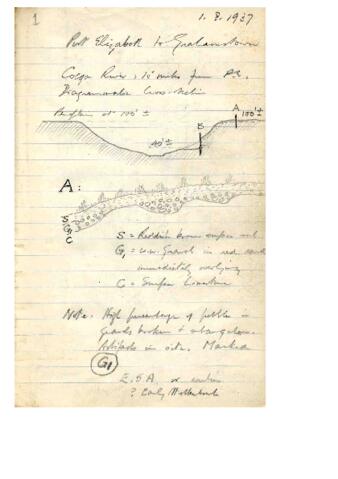 1
1.8.1937
Port Elizabeth to Grahamstown
Coega River, 15 miles from P.E.
Diagrammatic Cross-section
at 100' ±
A
100' ±
B
40' ±
A:
S
G1
C
S = Reddish brown surface soil
G1 = Gravel in red sand
immediately overlying
C = Surface Limestone
Note: High percentage of pebbles in
gravels broken + subangular.
Artifacts in situ. Marked
G1
E.S.A. or earlier
?